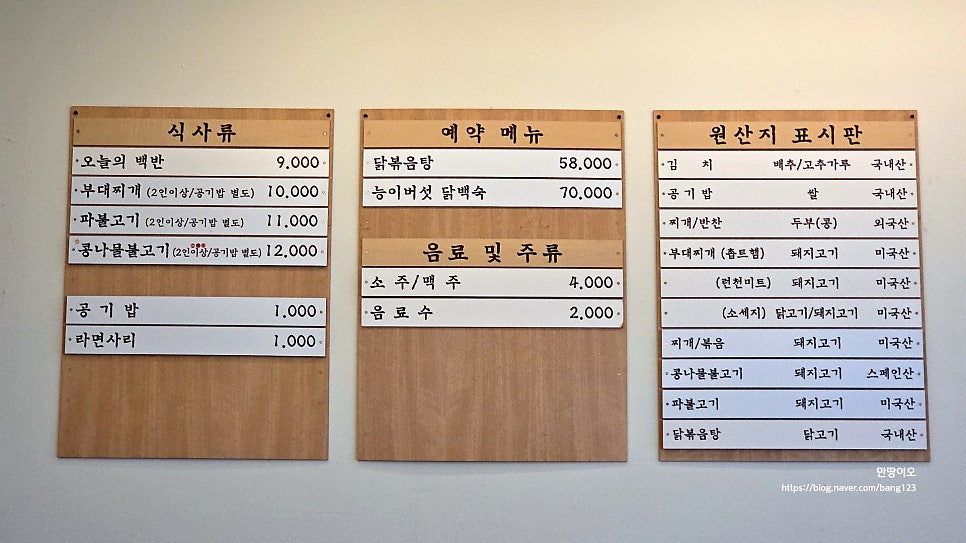 식사류
오늘의 백반 9.000
부대찌개 (2인이상/공기밥 별도) 10.000
파불고기 (2인이상/공기밥 별도) 11.000
콩나물불고기 (2인이상/공기밥 별도) 12.000
공기밥 1.000
라면사리 1.000
예약 메뉴
닭볶음탕 58.000
능이버섯 닭백숙 70.000
음료 및 주류
소주/맥주 4.000
음료수 2.000
원산지 표시판
김치 배추/고추가루 국내산
공기밥 쌀 국내산
찌개/반찬 두부(콩) 외국산
부대찌개 (촙트햄) 돼지고기 미국산
(런천미트) 돼지고기 미국산
(소세지) 닭고기/돼지고기 미국산
찌개/볶음 돼지고기 미국산
콩나물불고기 돼지고기 스페인산
파불고기 돼지고기 미국산
닭볶음탕 닭고기 국내산
만땅이오
https://blog.naver.com/bang123